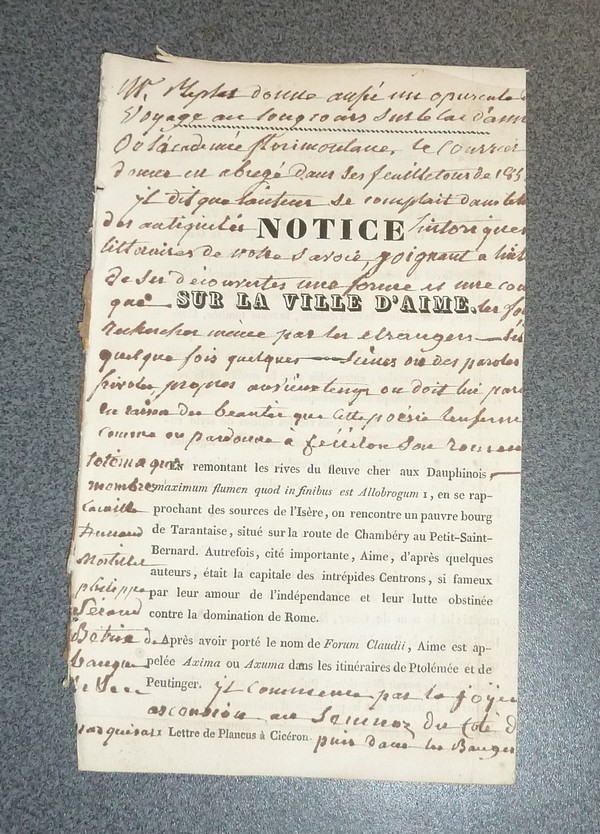 Mr. Replat donne aussi un opuscule
Voyage au long cours sur le lac d'ann
De l'académie florimontane, le Courrier
donne un abregé dans ses feuilletons de 185
il dit que l'auteur se complait dans
des antiquités NOTICE historiques
litteraires de notre Savoie, joignant a
de ses découvertes une forme et une
que SUR LA VILLE D'AIME. les
recherches même par les etrangers
quelque fois quelques scènes ou des paroles
frivoles, propres aux vieux temps on doit lui par
en raison des beautés que cette poésie renferme
comme on pardonne à fénélon son roman
télémaque En remontant les rives du fleuve cher aux Dauphinois,
membres maximum flumen quod in finibus est Allobrogum 1, en se rap-
prochant des sources de l'Isère, on rencontre un pauvre bourg
de Tarantaise, situé sur la route de Chambéry au Petit-Saint-
Mortillet Bernard. Autrefois, cité importante, Aime, d'après quelques
auteurs, était la capitale des intrépides Centrons, si fameux
philippe par leur amour de l'indépendance et leur lutte obstinée
Sécond contre la domination de Rome.
de Après avoir porté le nom de Forum Claudii, Aime est ap-
pelée Axima ou Axuma dans les itinéraires de Ptolémée et de
Peutinger. il commence par la
ascension au Semnoz du coté d
marquisat 1 Lettre de Plancus à Cicéron. puis dans les Bauges